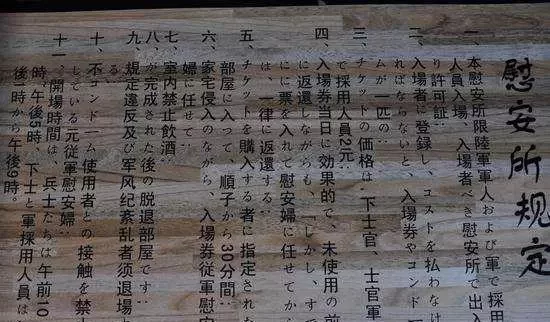 慰安所规定
一、本慰安所限陸軍軍人および軍で採用
人員入場，入場者べき慰安所で出入
り許可証：
二、入場者に登録し、コストを払わなけ
ればならないと、入場券やコンドー
ムが一匹の：
三、チケットの価格は、下士官、士官軍
で採用人員2元：
四、入場券当日に効果的で、未使用の前
に返還しながらも、しかし、すで
にに票を入れて慰安婦に任せてから
は、一律に返還する：
五、チケットを購入する者に指定された
部屋に入って、順子から30分間：
六、家宅侵入のながら、入場券従軍慰安
婦に任せて：
七、室内禁止飲酒：
八、が完成された後の脱退部屋です：
九、規定違反及び军风纪紊乱者须退場
る：
十、不コンドーム使用者との接触を禁
している元従軍慰安婦：
十一、開場時間は、兵士たちは午前10
時、午後5時、下士と軍採用人員は
後1時から午後9時。